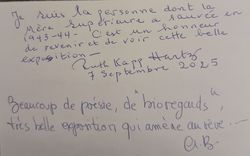 Je suis la personne dont la
Mère Supérieure a sauvée en
1943-44 - C'est un honneur
de revenir et de voir cette belle
exposition -
Ruth Kapp Hartz
7 Septembre 2025
Beaucoup de poésie, de "bioregards",
très belle exposition qui amène au rêve...